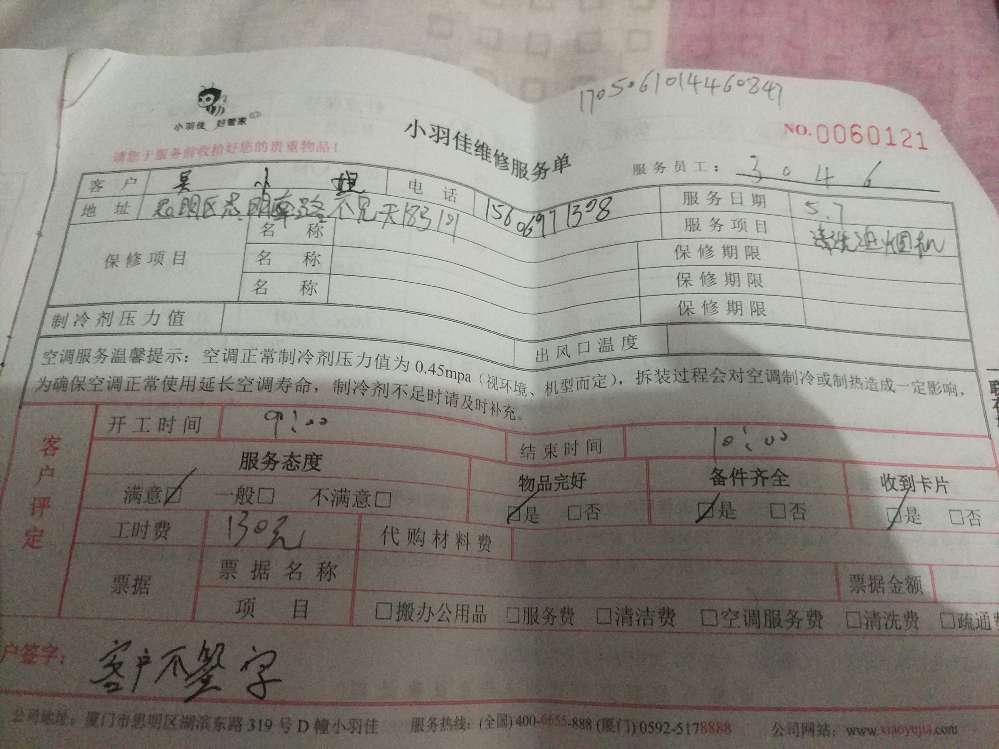 17050610144460847
小羽佳 好管家
小羽佳维修服务单
NO.0060121
请您于服务前收拾好您的贵重物品!
服务员工: 3046
客户 吴小姐 电话 15606971308 服务日期 5.7
地址 思明区思明南路 服务项目 清洗油烟机
保修项目 名称 保修期限
名称 保修期限
名称 保修期限
制冷剂压力值 出风口温度
空调服务温馨提示:空调正常制冷剂压力值为0.45mpa(视环境、机型而定),拆装过程会对空调制冷或制热造成一定影响,
为确保空调正常使用延长空调寿命,制冷剂不足时请及时补充。
客户评定
开工时间 9:00 结束时间 10:00
服务态度 物品完好 备件齐全 收到卡片
满意☑ 一般□ 不满意□ ☑是 □否 ☑是 □否 ☑是 □否
工时费 130元 代购材料费
票据 票据名称 票据金额
项目 □搬办公用品 □服务费 □清洁费 □空调服务费 □清洗费 □疏通费
户签字: 客户不签字
公司地址:厦门市思明区湖滨东路319号D幢小羽佳 服务热线:(全国)400-6655-888(厦门)0592-5178888 公司网站:www.xiaoyujia.com